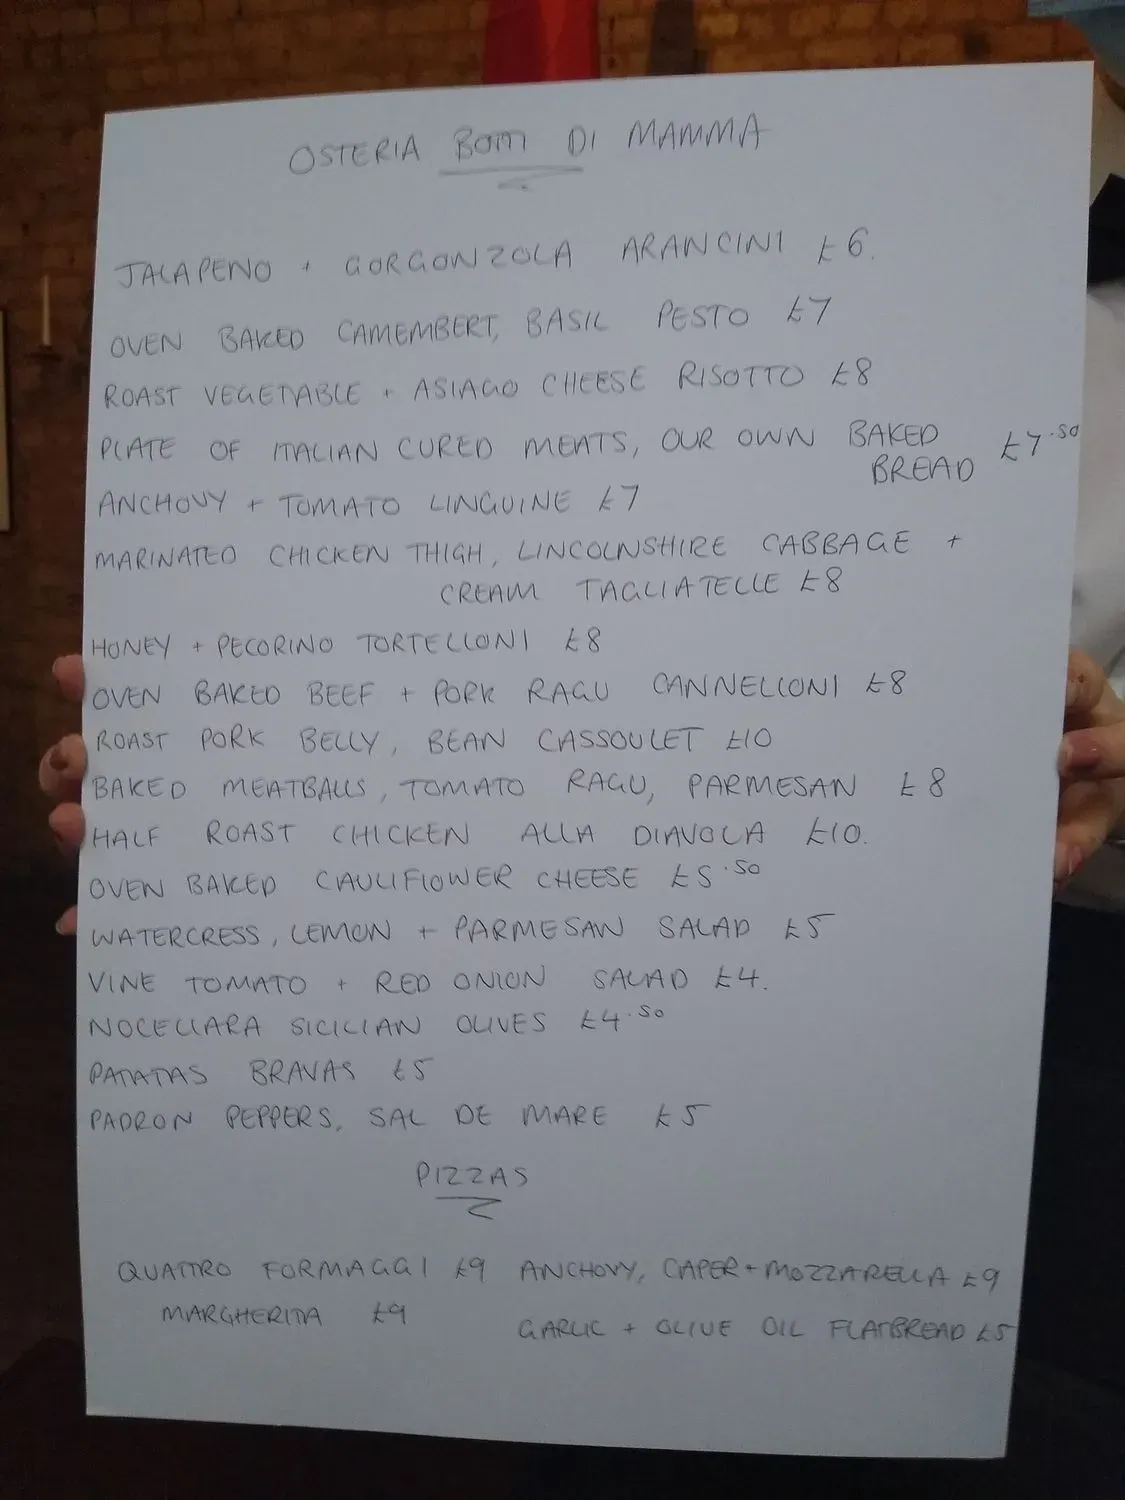 OSTERIA BOM DI MAMMA
JALAPENO + GORGONZOLA ARANCINI £6.
OVEN BAKED CAMEMBERT, BASIL PESTO £7
ROAST VEGETABLE + ASIAGO CHEESE RISOTTO £8
PLATE OF ITALIAN CURED MEATS, OUR OWN BAKED
BREAD £7.50
ANCHOVY + TOMATO LINGUINE £7
MARINATED CHICKEN THIGH, LINCOLNSHIRE CABBAGE +
CREAM TAGLIATELLE £8
HONEY + PECORINO TORTELLONI £8
OVEN BAKED BEEF + PORK RAGU CANNELLONI £8
ROAST PORK BELLY, BEAN CASSOULET £10
BAKED MEATBALLS, TOMATO RAGU, PARMESAN £8
HALF ROAST CHICKEN ALLA DIAVOLA £10.
OVEN BAKED CAULIFLOWER CHEESE £5.50
WATERCRESS, LEMON + PARMESAN SALAD £5
VINE TOMATO + RED ONION SALAD £4.
NOCELLARA SICILIAN OLIVES £4.50
PATATAS BRAVAS £5
PADRON PEPPERS, SAL DE MARE £5
PIZZAS
QUATTRO FORMAGGI £9 ANCHOVY, CAPER + MOZZARELLA £9
MARGHERITA £9 GARLIC + OLIVE OIL FLATBREAD £5